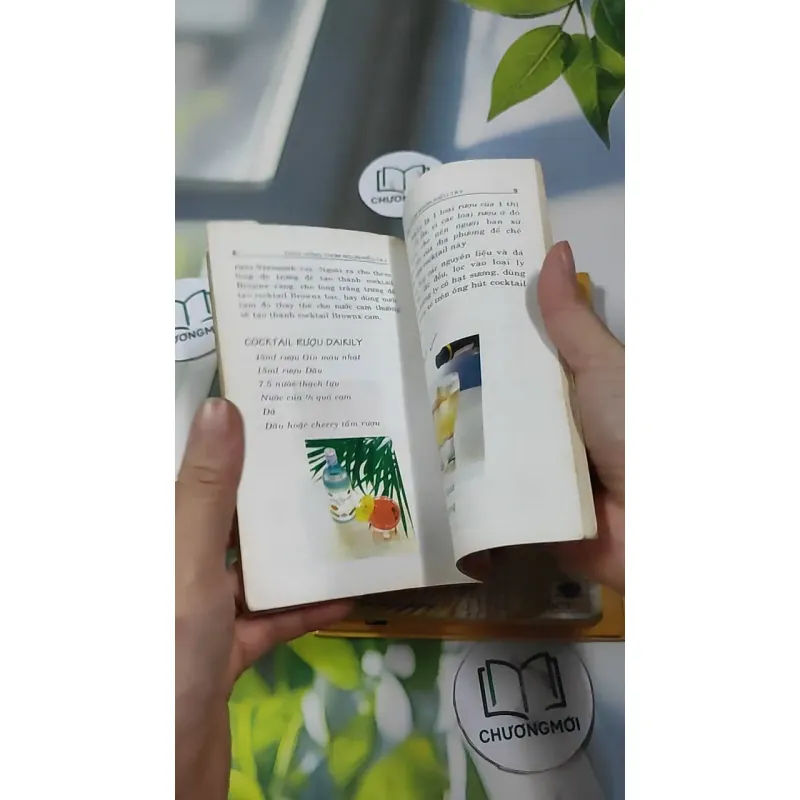 CHƯƠNG
CHƯƠNGMỚI
8
rượu Vermouth cay. Người ta cho thêm
lòng đỏ trứng để tạo thành cocktail
cho lòng trắng trứng để
tạo cocktail Brownx bạc, hay dùng nước
cam đỏ thay thế cho nước cam thường
sẽ tạo thành cocktail Brownx cam.
COCKTAIL RƯỢU DAIKILY
45ml rượu Gin màu nhạt
15ml rượu Dâu
7.5 nước thạch lựu
Nước của ½ quả cam
Đá
Dâu hoặc cherry tẩm rượu
9
là 1 loại rượu của 1 thị
vì các loại rượu ở đó
cho nên người bản xứ
của địa phương để chế
cocktail này
các nguyên liệu và đá
đều, lọc vào loại ly
ly có hạt sương, dùng
vẽ trên ống hút cocktail
CHƯƠNGMỚI